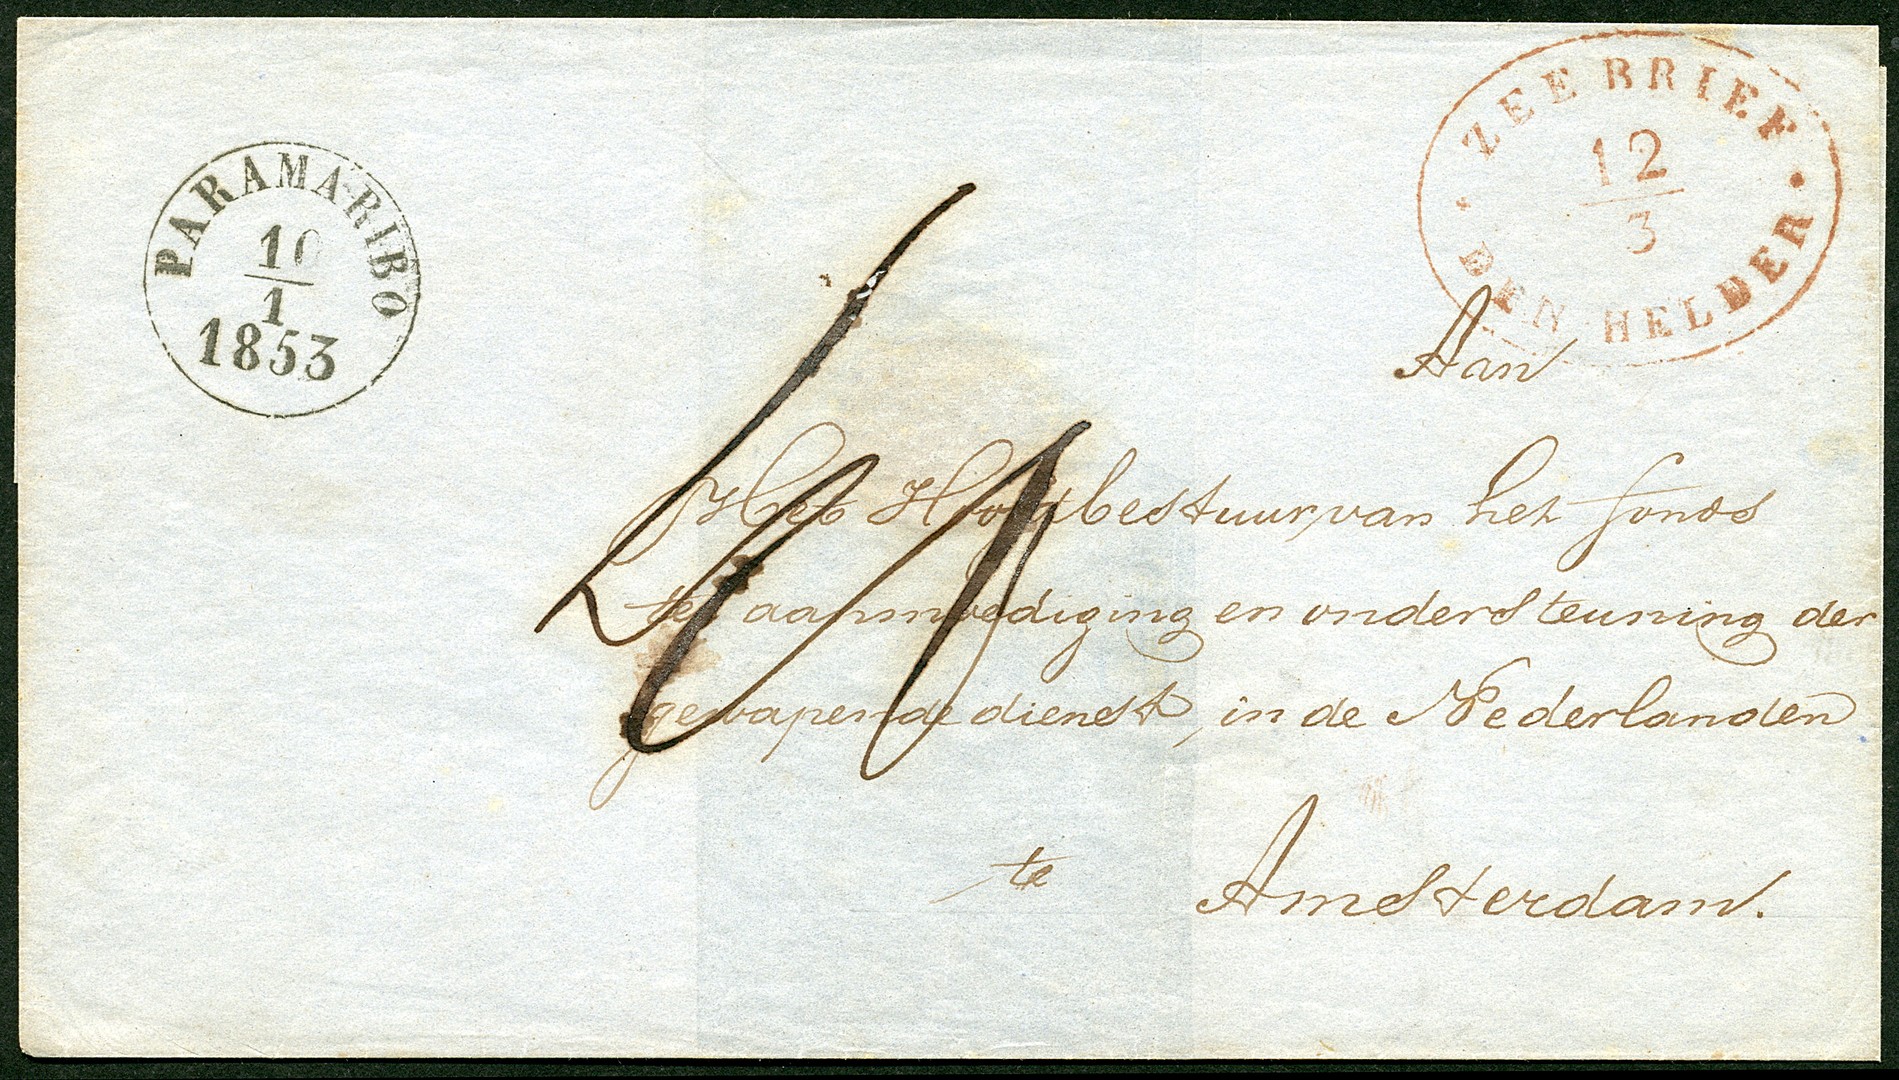 PARAMARIBO
10
1
1853
ZEEBRIEF
12
3
DEN HELDER
Aan
Het Hoofdbestuur, van het fonds
ter aanmoediging en ondersteuning der
gewapende dienst, in de Nederlanden
te Amsterdam.